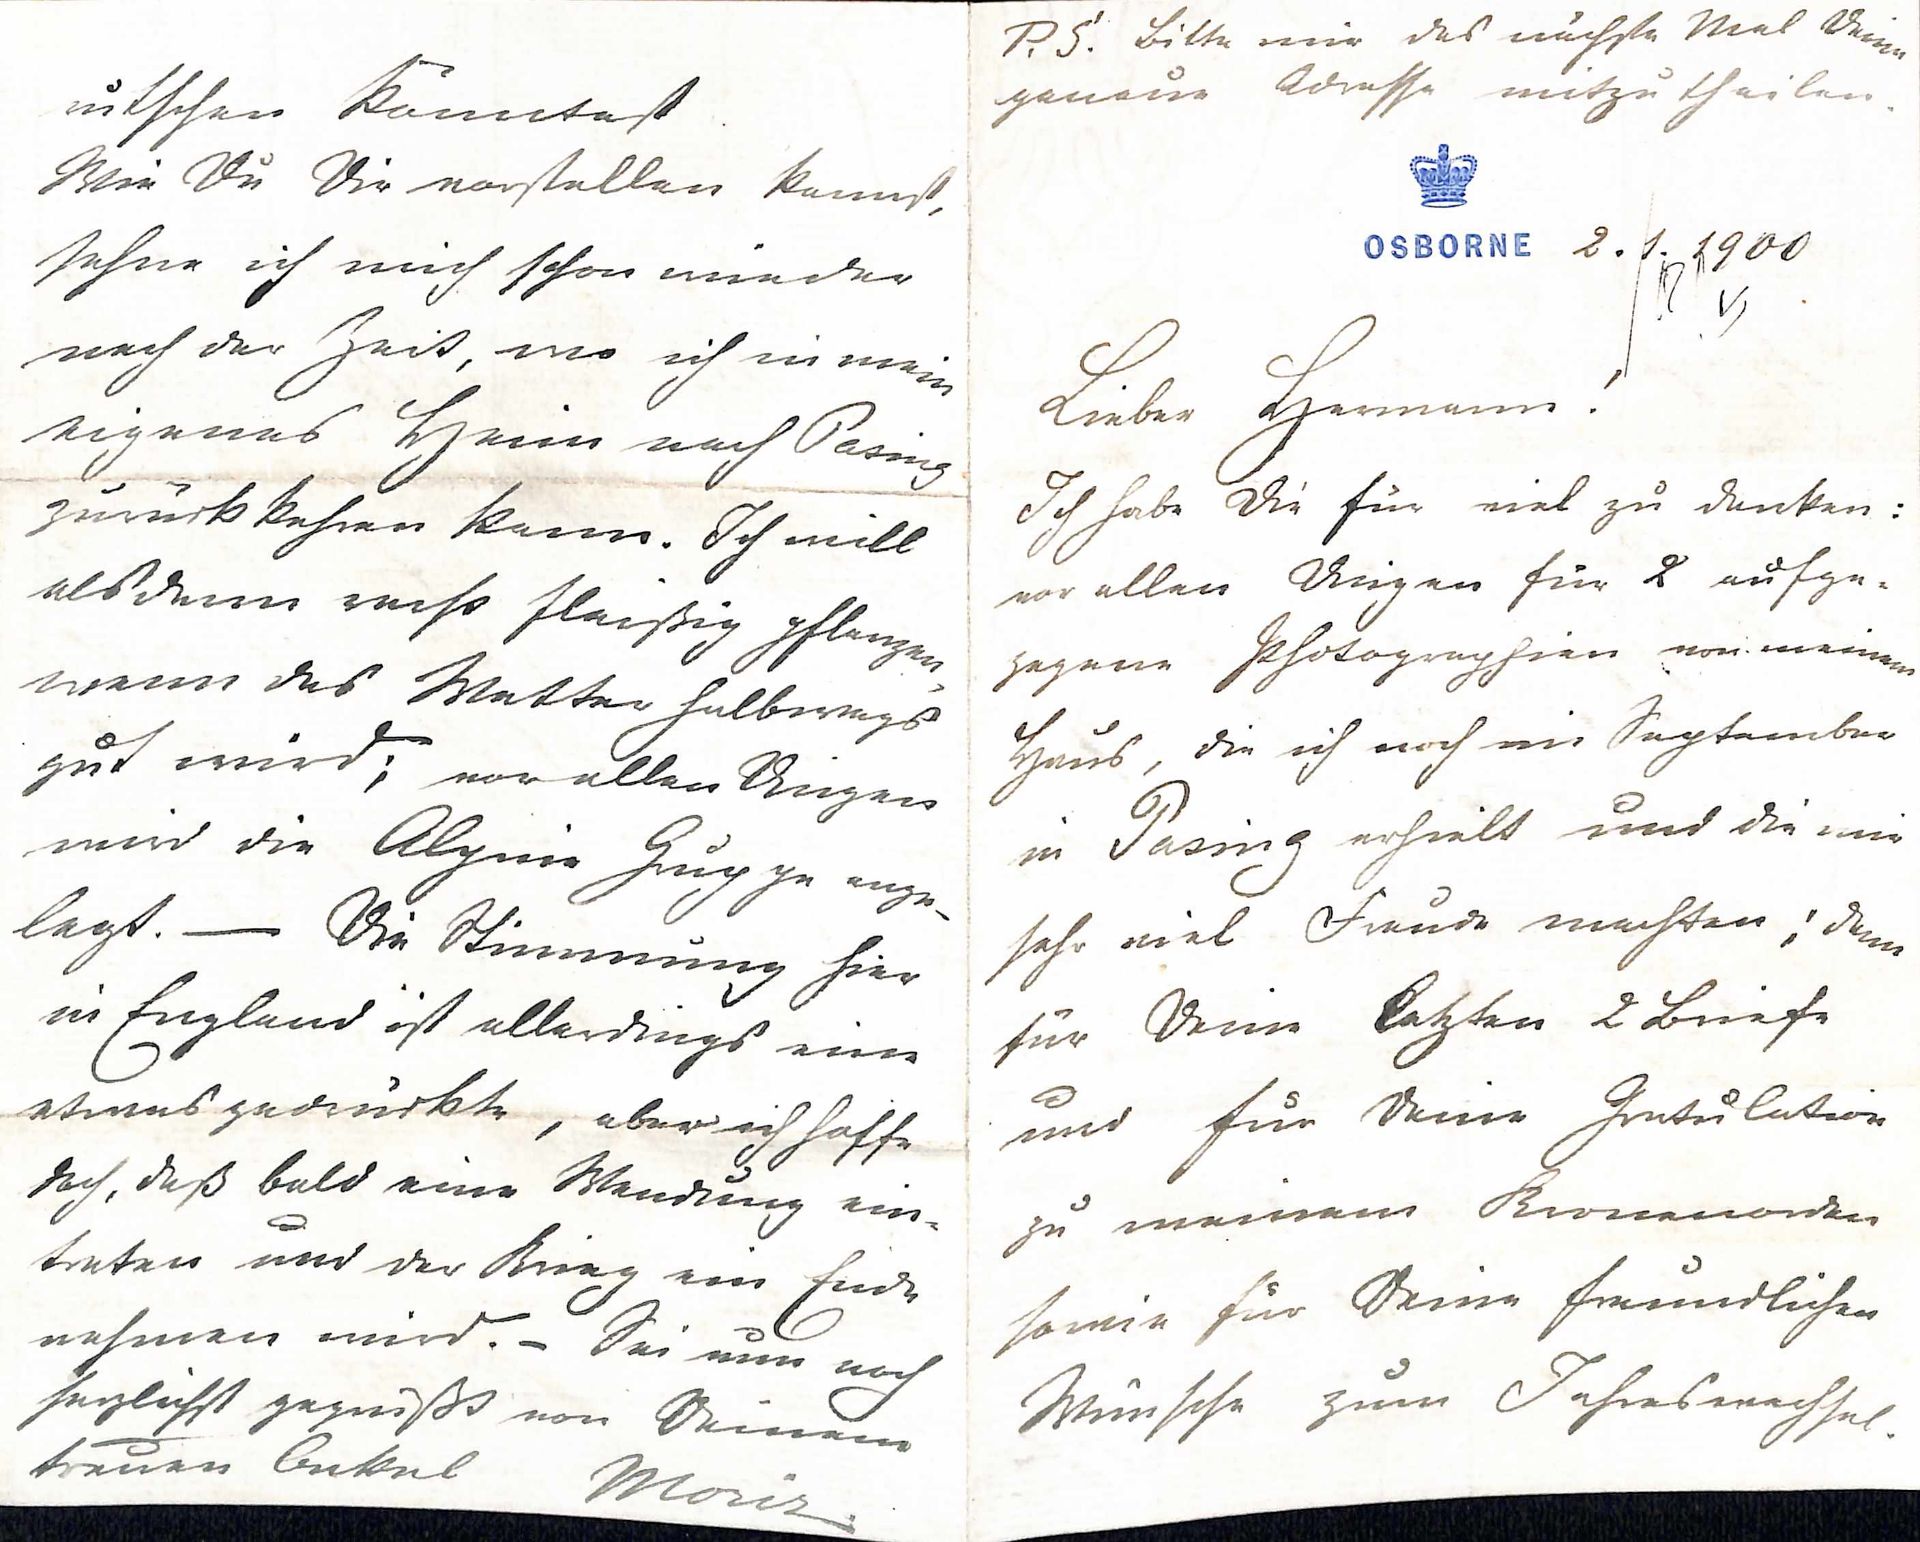 P.S. Bitte mir das nächste Mal Deine
genaue Adresse mitzutheilen.
OSBORNE 2.1.1900
Lieber Hermann!
Ich habe Dir für viel zu danken:
vor allen Dingen für 2 aufge-
zogene Photographien von meinem
Haus, die ich noch im September
in Pasing erhielt und die mir
sehr viel Freude machten; dann
für Deine letzten 2 Briefe
und für Deine Gratulation
zu meinem Kronenorden
sowie für Deine freundlichen
Wünsche zum Jahreswechsel.
rutschen könntest.
Wie Du Dir vorstellen kannst,
sehne ich mich schon wieder
nach der Zeit, wo ich in mein
eigenes Heim nach Pasing
zurückkehren kann. Ich will
alsdann recht fleißig pflanzen,
wenn das Wetter halbwegs
gut wird; vor allen Dingen
wird die Alpine Gruppe ange-
legt. — Die Stimmung hier
in England ist allerdings eine
etwas gedrückte, aber ich hoffe
doch, daß bald eine Wendung ein-
treten und der Krieg ein Ende
nehmen wird. – Sei nun noch
herzlichst gegrüßt von Deinem
treuen Onkel Moriz.